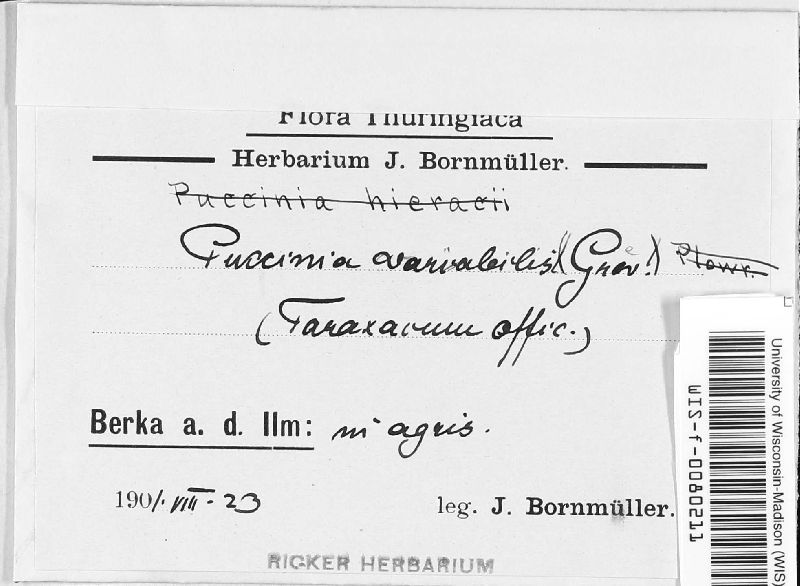 Flora Thuringiaca
Herbarium J. Bornmüller.
Puccinia hieracii
Puccinia variabilis (Grev.) Plowr.
(Taraxacum offic.)
Berka a. d. Ilm: in agris.
1901. VIII. 23
leg. J. Bornmüller.
RICKER HERBARIUM
University of Wisconsin-Madison (WIS)
WIS-f-0080211